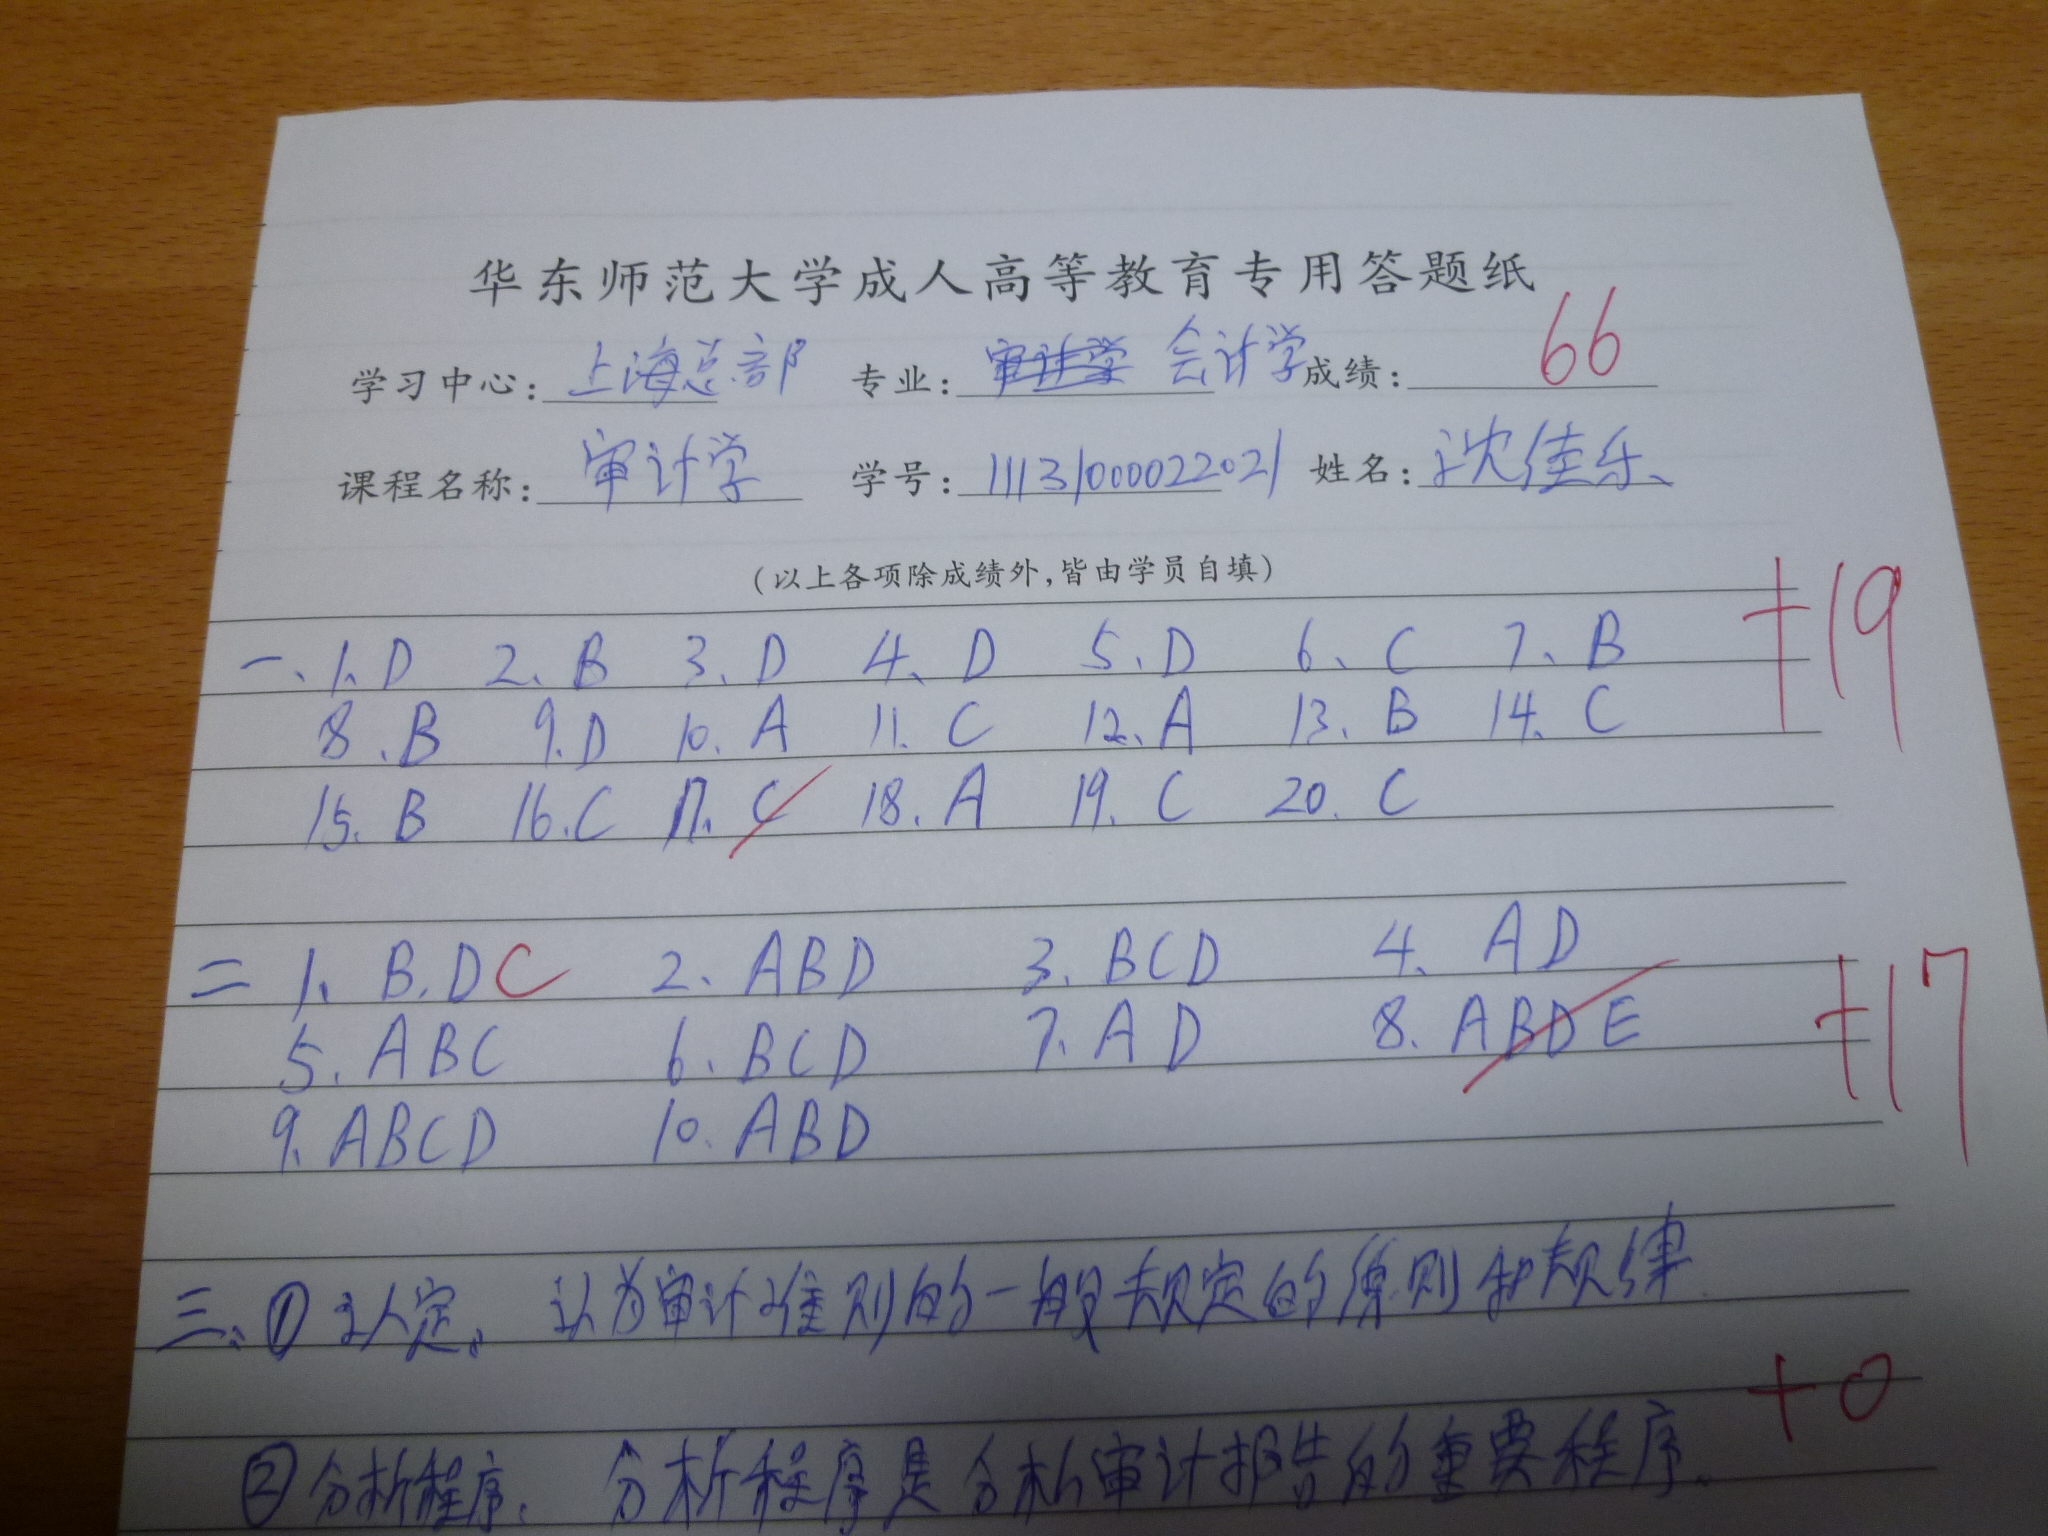 华东师范大学成人高等教育专用答题纸
学习中心: 上海总部 专业: 会计学 成绩: 66
课程名称: 审计学 学号: 11131000022021 姓名: 沈佳乐
(以上各项除成绩外,皆由学员自填)
一、1、D 2、B 3、D 4、D 5、D 6、C 7、B +19
8、B 9、D 10、A 11、C 12、A 13、B 14、C
15、B 16、C 17、C 18、A 19、C 20、C
二 1、B、D C 2、ABD 3、BCD 4、AD +17
5、ABC 6、BCD 7、AD 8、ABDE
9、ABCD 10、ABD
三、① 认定。认为审计准则的一般规定的原则和规律.
+0
② 分析程序: 分析程序是分析审计报告的重要程序。